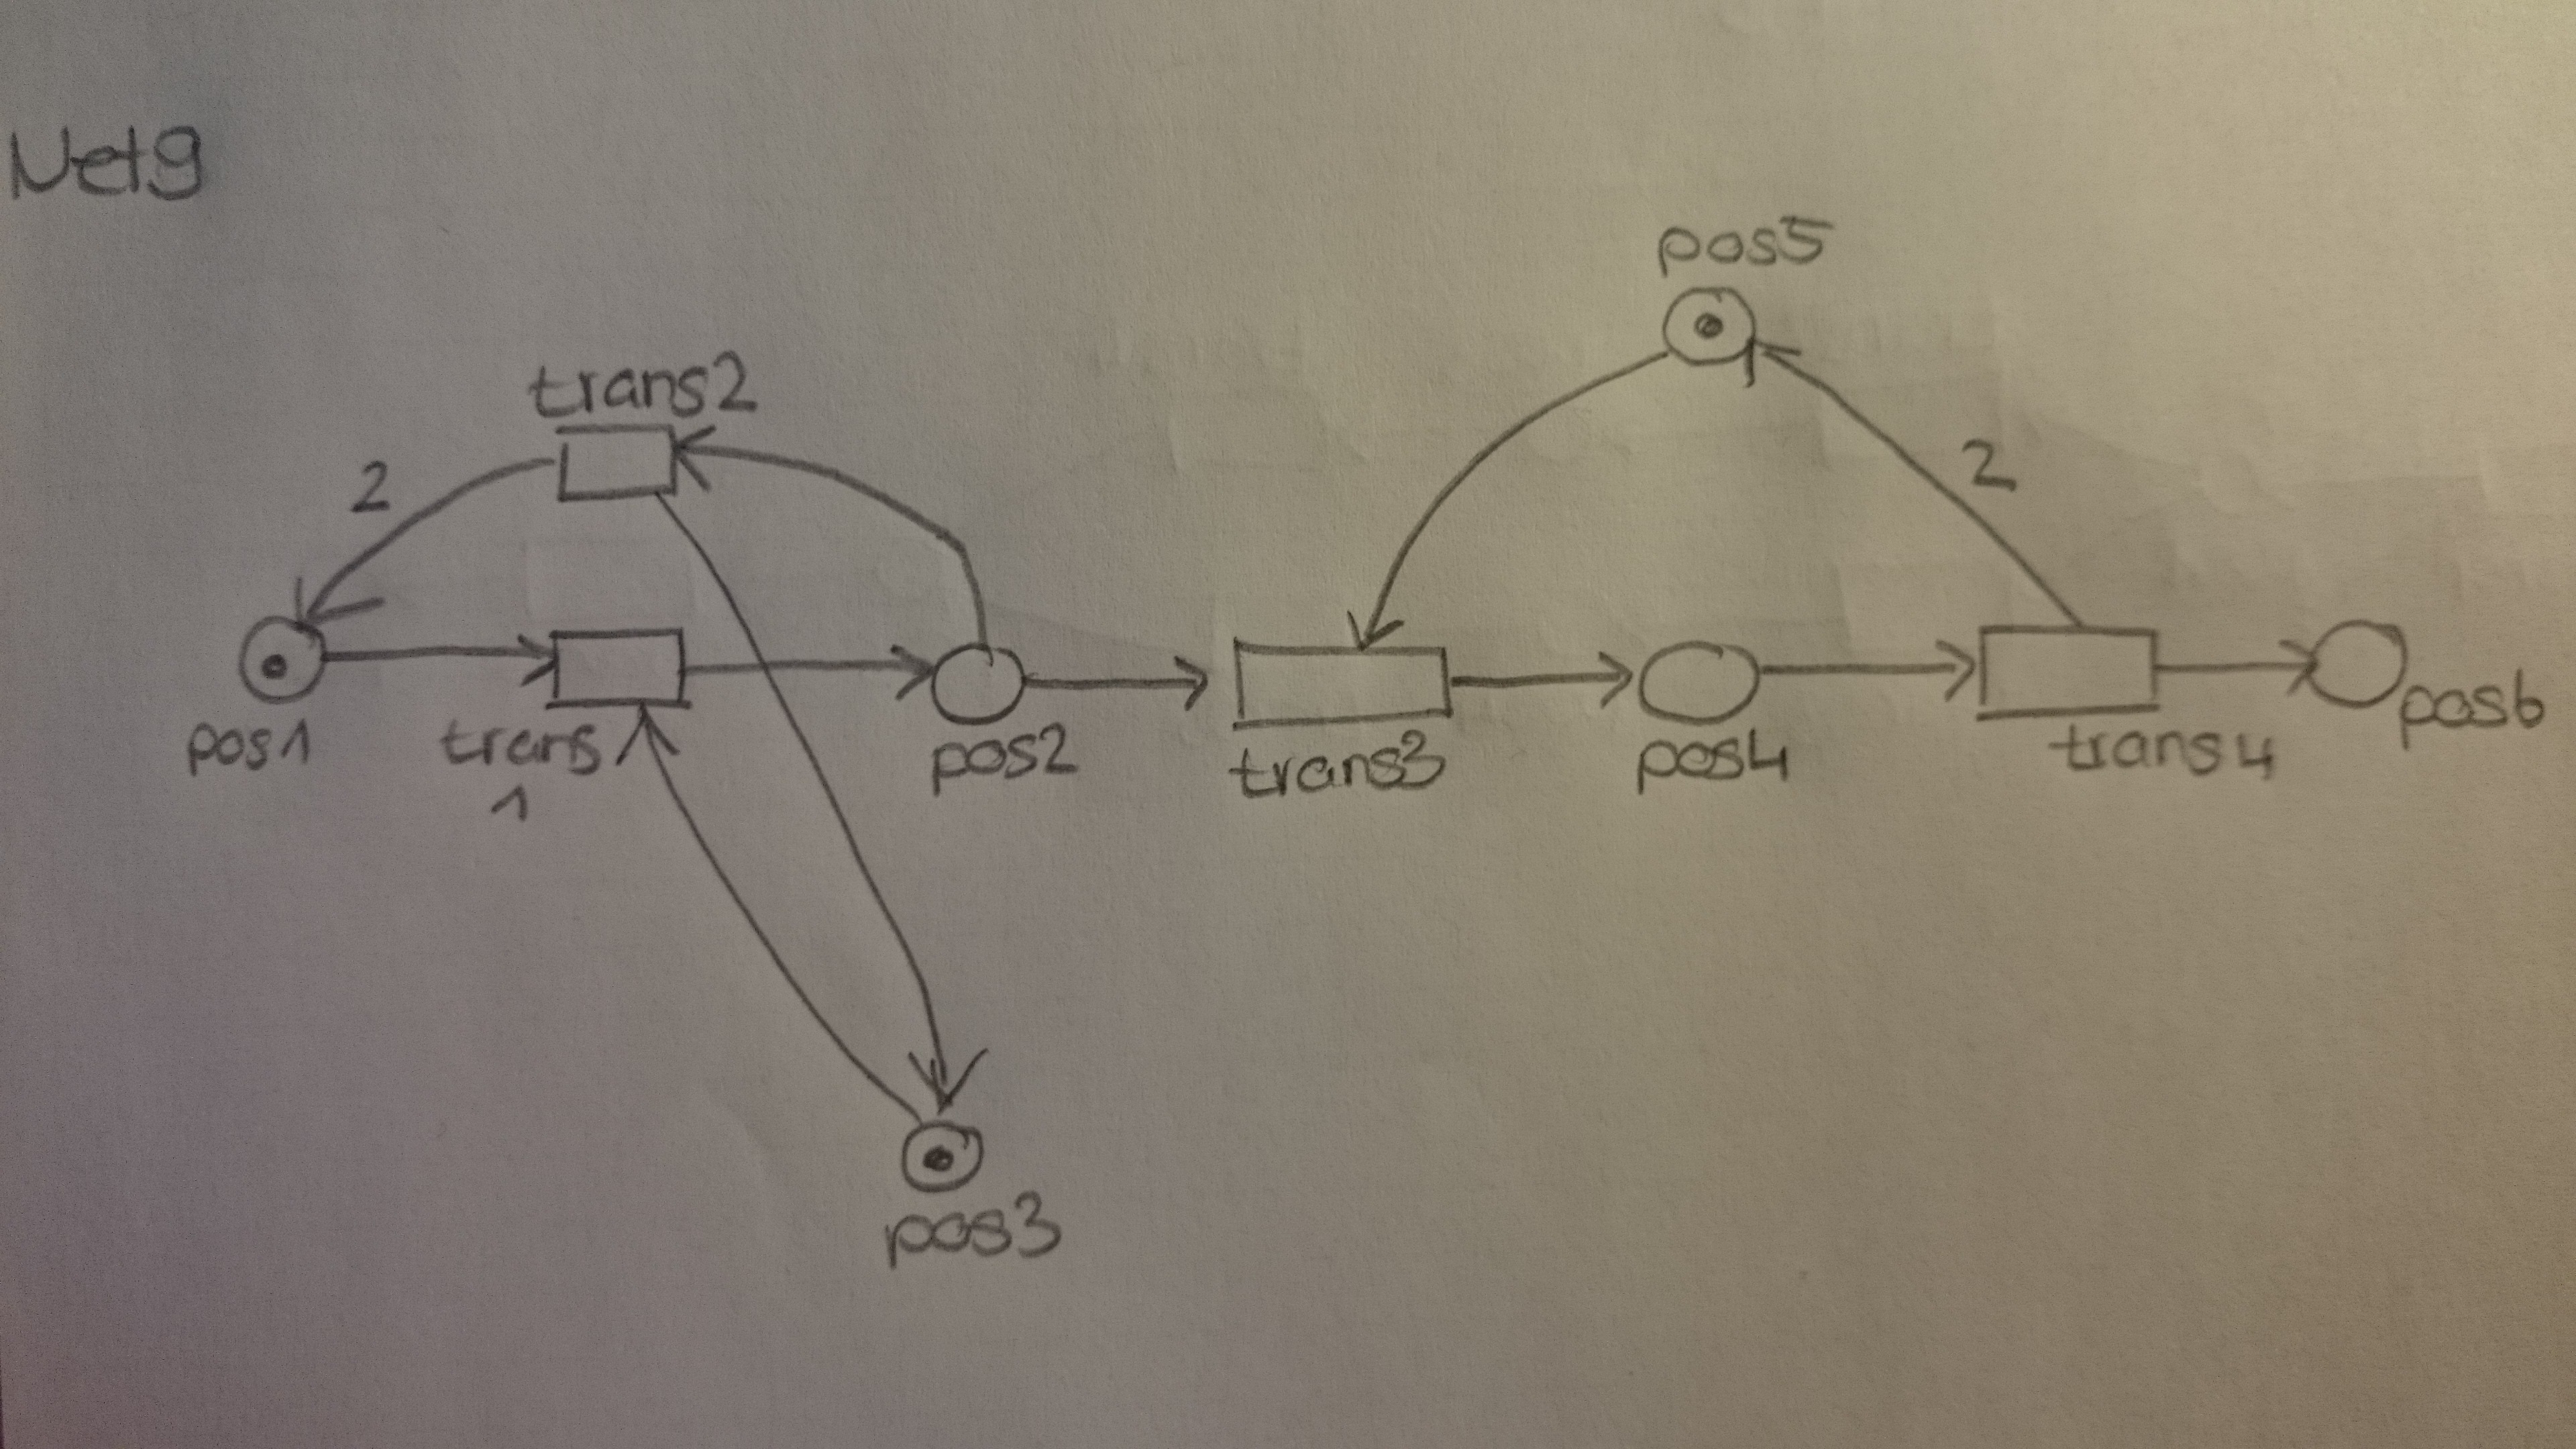 Net9
pos5
trans2
2
2
pos1
trans
1
pos2
trans3
pos4
trans4
pos6
pos3